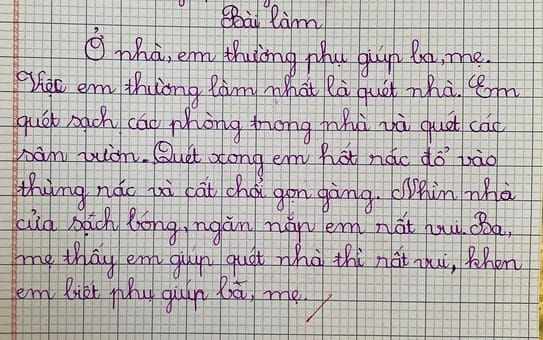 Bài làm
Ở nhà, em thường phụ giúp ba, mẹ.
Việc em thường làm nhất là quét nhà. Em
quét sạch các phòng trong nhà và quét các
sân vườn. Quét xong em hốt rác đổ vào
thùng rác và cất chổi gọn gàng. Nhìn nhà
cửa sạch bóng, ngăn nắp em rất vui. Ba,
mẹ thấy em giúp quét nhà thì rất vui, khen
em biết phụ giúp bà, mẹ.